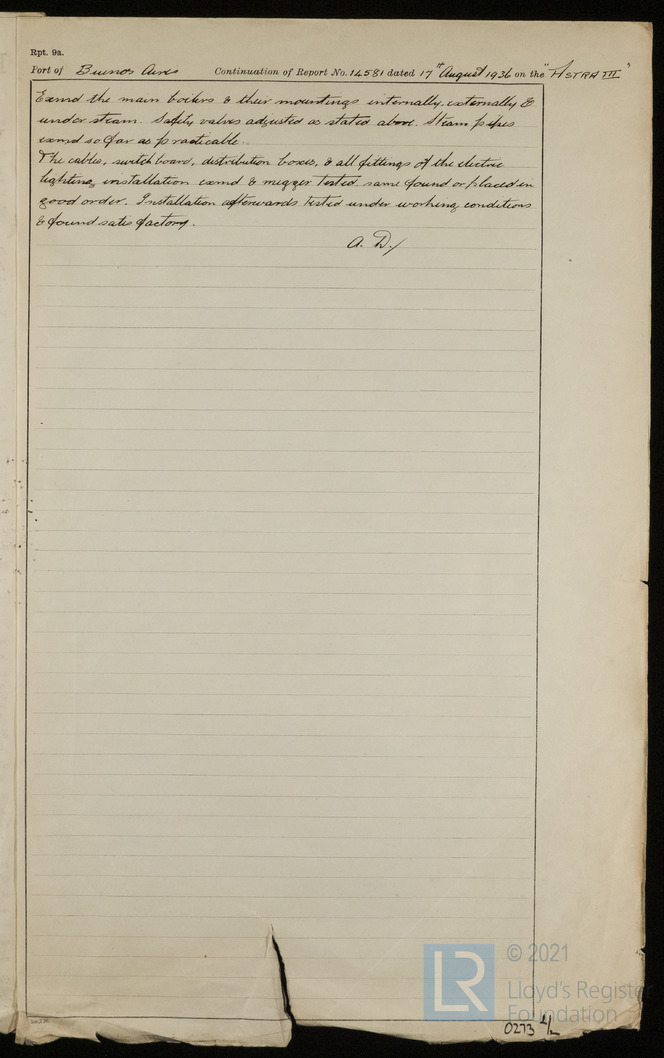 Rpt. 9a.
Port of Buenos Aires Continuation of Report No. 14581 dated 17th August 1936 on the "ASTRA III"
Exmd the main boilers & their mountings internally, externally &
under steam. Safety valves adjusted as stated above. Steam pipes
exmd so far as practicable.
The cables, switch board, distribution boxes, & all fittings of the electric
lighting installation exmd & megger tested same found or placed in
good order. Installation afterwards tested under working conditions
& found satisfactory.
A. D./
LR © 2021
Lloyd's Register
Foundation
0273 2/2